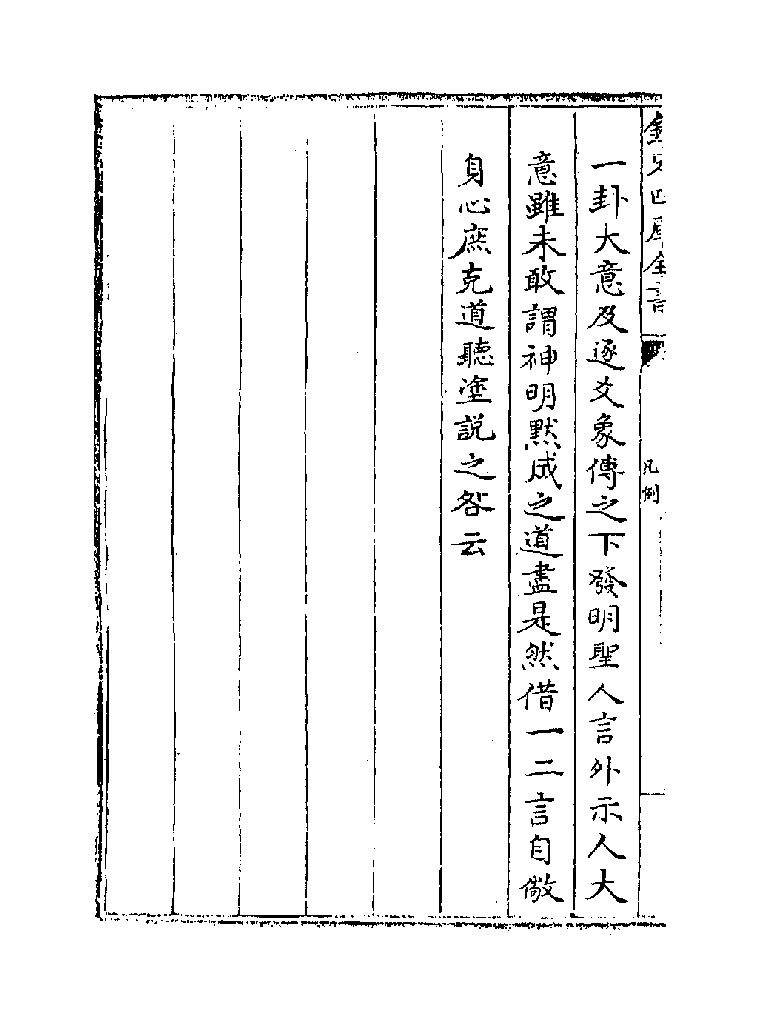 欽定四庫全書
凡例
一卦大意及逐爻象傳之下發明聖人言外示人大
意雖未敢謂神明黙成之道盡是然借一二言自儆
身心庶免道聽塗説之咎云